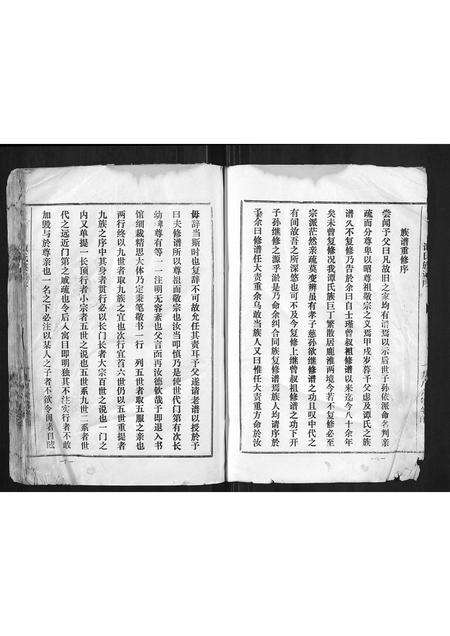 族谱重修序
尝闻予父曰凡故旧之家均有谱焉以示后世子孙依派命名判亲
疏而分尊卑以昭尊祖敬宗之义焉甲戌岁荐千公虑及谭氏之族
谱久不复修乃告於余曰自士瑾曾叔祖修谱以来迄今八十余年
矣未曾复修况我谭氏族巨丁繁散居鹿淮两境今若不复修必至
宗派茫然亲疏莫变辨虽有孝子慈孙欲继修谱之功且叹中代之
有间故吾之所深悠也可不及今复修上继曾叔祖修谱之功下开
子孙继修之源乎淤是乃命余纠合同族复修谱焉族人均请序於
予余曰修谱任大责重余乌敢当族人又曰惟任大责重方命於汝
毋辞当斯时也复辞不可故允任其责耳予父遂请老谱以授於予
曰夫修谱所以尊祖而敬宗也汝当叩慎乃是使世代门第有次长
幼尊有等一一注明无容紊也父言而再汝德钦哉予即退入书
馆细裁精思大体乃定秉笔敬书一行 列五世者取五服之亲也
两行终以九世者取九族之宜也次行宜首六世仍以五世重提者
九族之序中其身者贯行必以长门长者大宗百世之说也一门之
内又单提一长顶行者小宗者五世之说也五世系九世二系者世
代之远近门第之戚疏也令后人寓目即明独其不注实行者不敢
加毁与於尊亲也一名之下必注以某人之子者不欲令